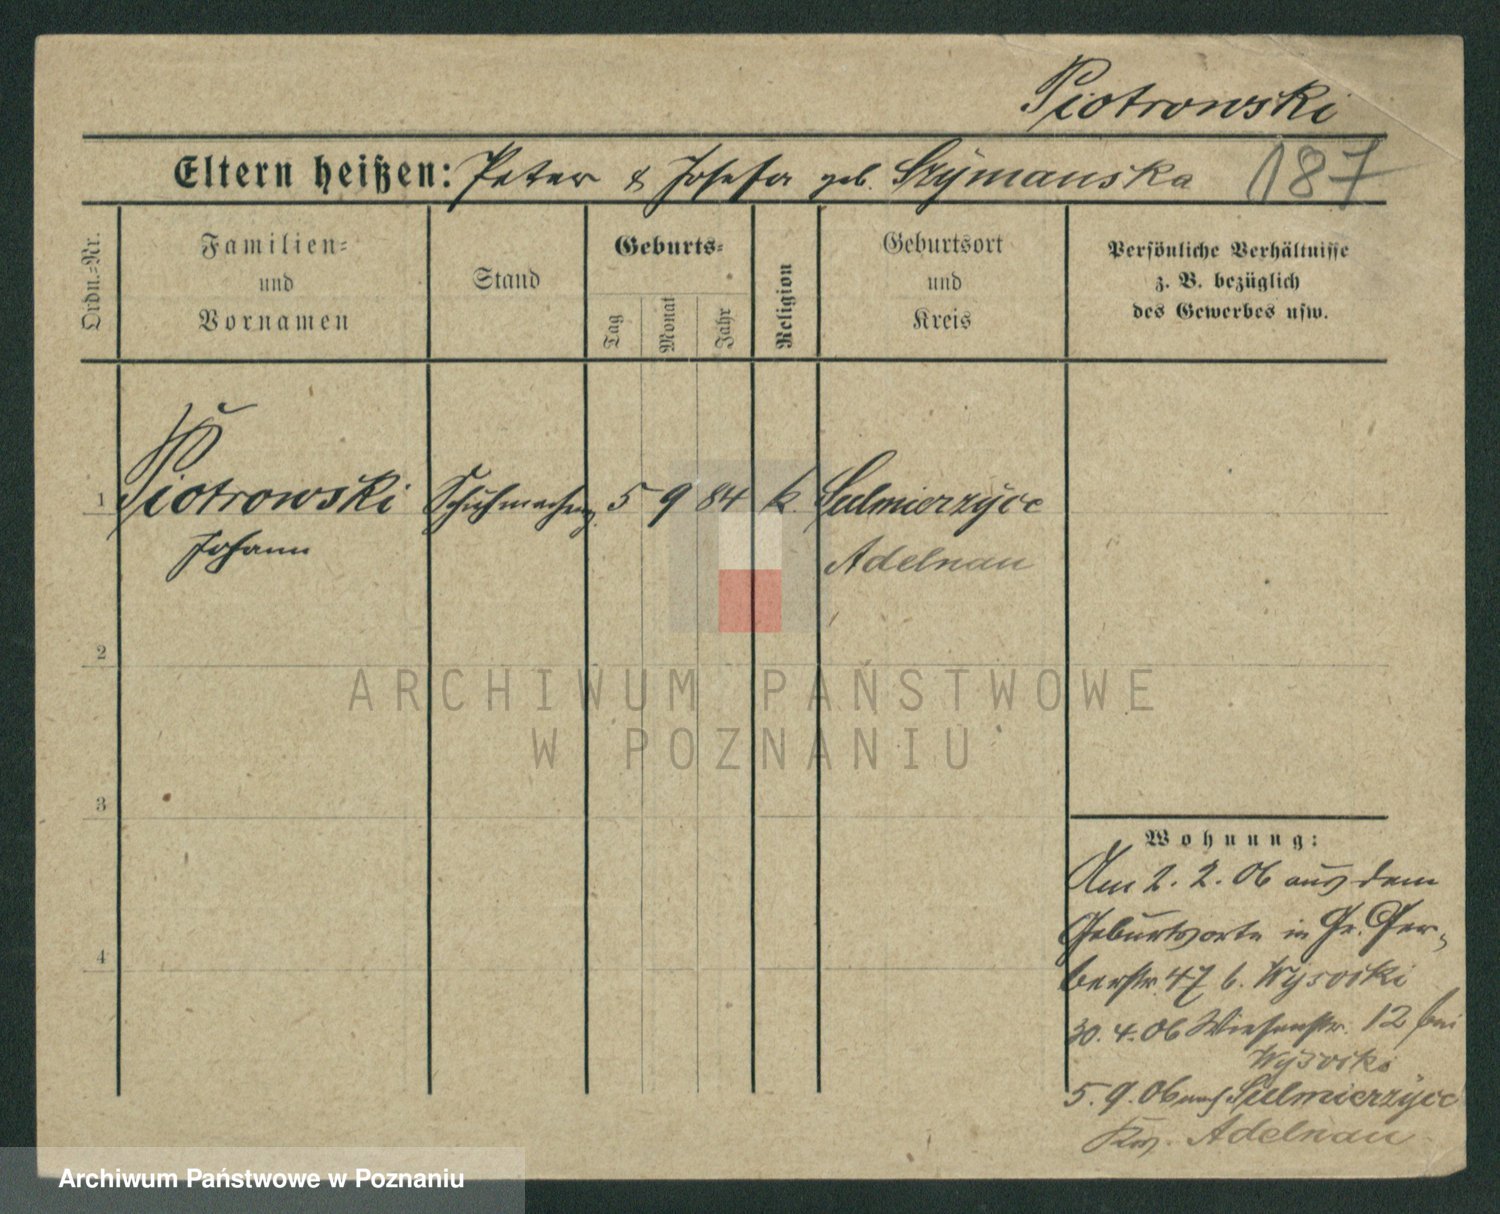 Piotrowski
187
Eltern heißen: Peter & Josefa geb. Szymanska
Ordn.-Nr.
Familien-
und
Vornamen
Stand
Geburts-
Tag
Monat
Jahr
Religion
Geburtsort
und
Kreis
Persönliche Verhältnisse
z. B. bezüglich
des Gewerbes usw.
1 Piotrowski Schuhmacherg. 5 9 84 k. Sulmierzyce
Johann
Adelnau
2
3
4
ARCHIWUM PAŃSTWOWE
W POZNANIU
Wohnung:
Am 2. 2. 06 aus dem
Geburtsorte in Gr. Ger-
berstr. 47 b. Wysocki
30. 4. 06 Wiesenstr. 12 bei
Wysocki
5. 9. 06 nach Sulmierzyce
Adelnau
Archiwum Państwowe w Poznaniu